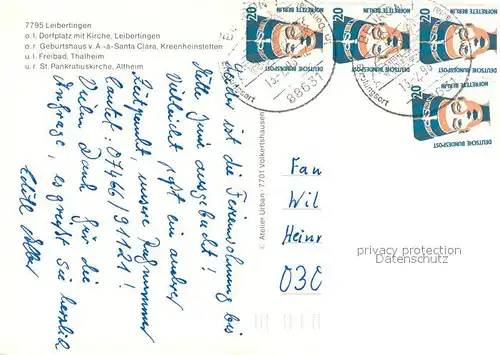 7795 Leibertingen
o. l. Dorfplatz mit Kirche, Leibertingen
o. r. Geburtshaus v. A.-a-Santa Clara, Kreenheinstetten
u. l. Freibad, Thalheim
u. r. St. Pankratiuskirche, Altheim
Leider ist die Ferienwohnung bis
Mitte Juni ausgebucht!
Vielleicht paßt ein anderer
Zeitpunkt, unsere Rufnummer
lautet: 07466/91121!
Vielen Dank für die
Anfrage, es grüßt Sie herzlich
Edith
© Atelier Urban · 7701 Volkertshausen
20 NOFRETETE BERLIN DEUTSCHE BUNDESPOST
20 NOFRETETE BERLIN DEUTSCHE BUNDESPOST
20 NOFRETETE BERLIN DEUTSCHE BUNDESPOST
20 NOFRETETE BERLIN DEUTSCHE BUNDESPOST
88631
Fam
Wil
Heinr
030
privacy protection
Datenschutz